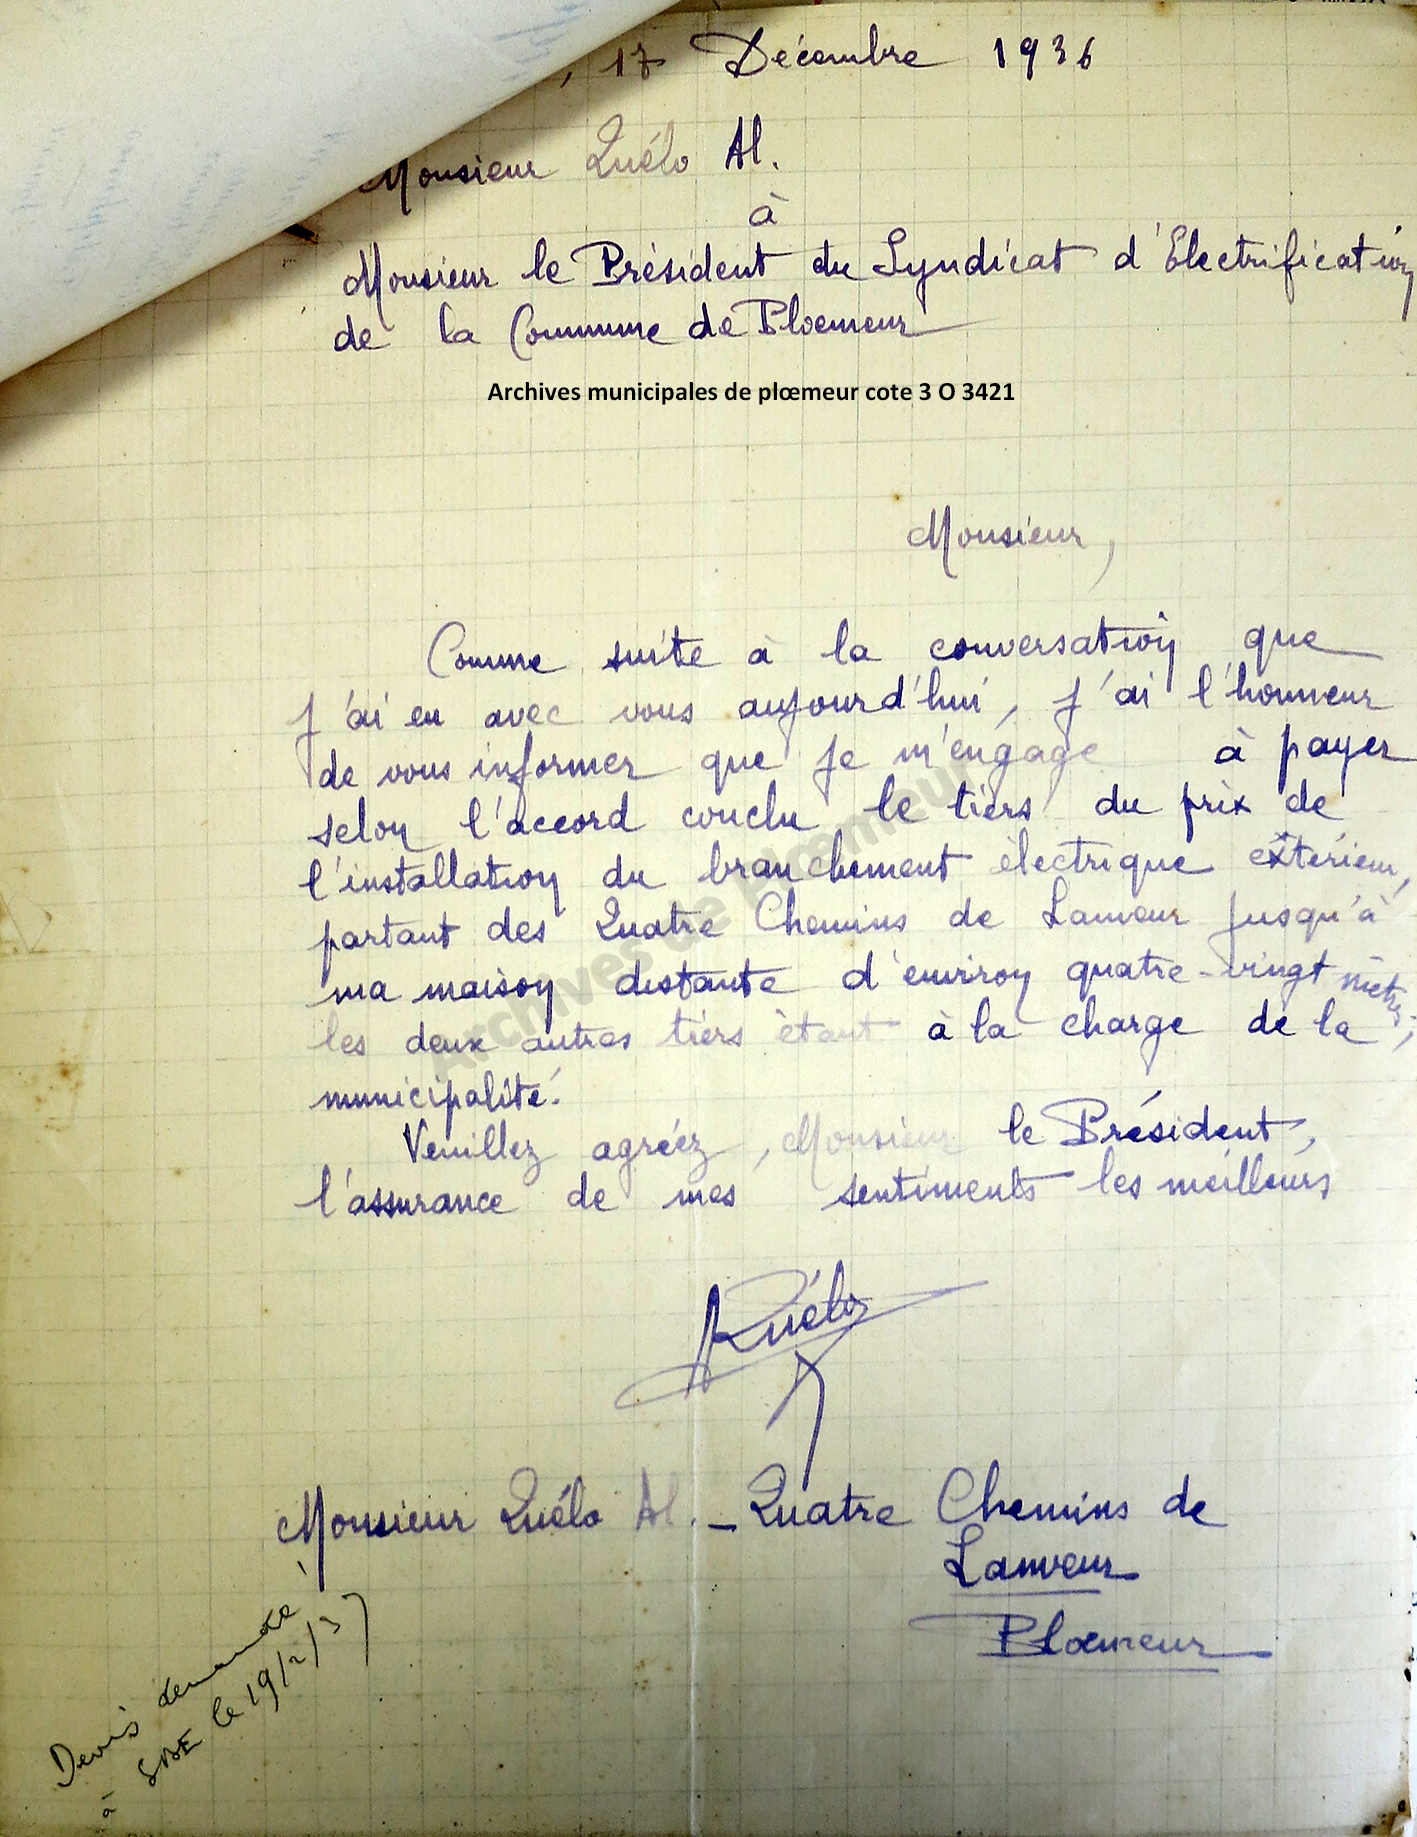 , 17 Décembre 1936
Monsieur Quélo Al.
à
Monsieur le Président du Syndicat d'Electrification
de la Commune de Ploemeur
Archives municipales de plœmeur cote 3 O 3421
Monsieur,
Comme suite à la conversation que
j'ai eu avec vous aujourd'hui, j'ai l'honneur
de vous informer que je m'engage à payer
selon l'accord conclu le tiers du prix de
l'installation du branchement électrique extérieur,
partant des Quatre Chemins de Lanveur jusqu'à
ma maison distante d'environ quatre-vingt mètres;
les deux autres tiers étant à la charge de la
municipalité.
Veuillez agréez, Monsieur le Président,
l'assurance de mes sentiments les meilleurs
Quélo
Monsieur Quélo Al. _ Quatre Chemins de
Lanveur
Ploemeur
Devis demandé
à SBE le 19/2/37
Archives de Ploemeur